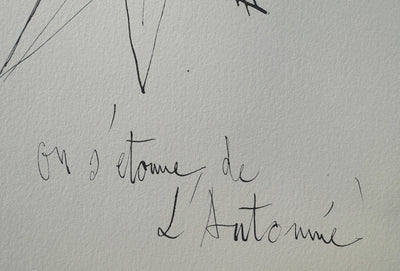 on s'étonne, de
L'Automne